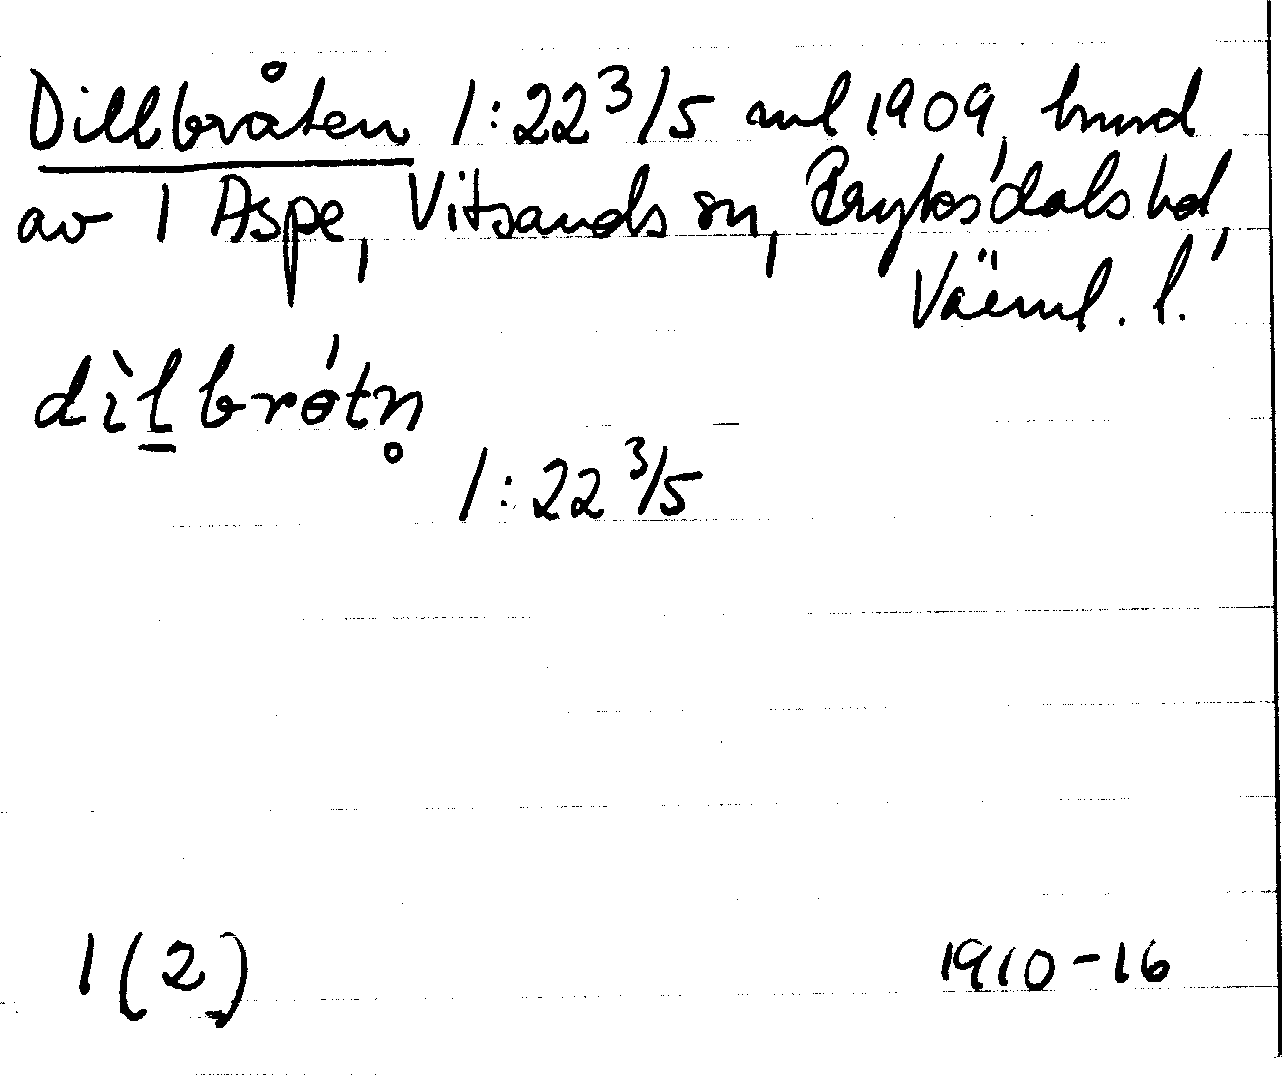 Dillbråten 1:22 3/5 ml 1909, hmd
av 1 Aspe, Vitsands sn, Fryksdals hd,
Värml. l.
dìḻbrǿtn̥
1:22 3/5
1(2) 1910-16